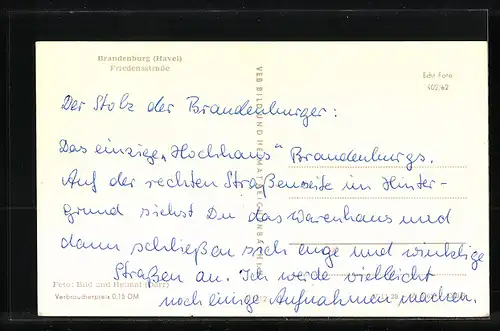 Brandenburg (Havel)
Friedensstraße
Echt Foto
402/62
Der Stolz der Brandenburger:
Das einzige „Hochhaus“ Brandenburgs.
Auf der rechten Straßenseite im Hinter-
grund siehst Du das Warenhaus und
dann schließen sich enge und winklige
Straßen an. Ich werde vielleicht
noch einige Aufnahmen machen.
VEB BILD UND HEIMAT REICHENBACH
Foto: Bild und Heimat (Darr)
Verbraucherpreis 0,15 DM